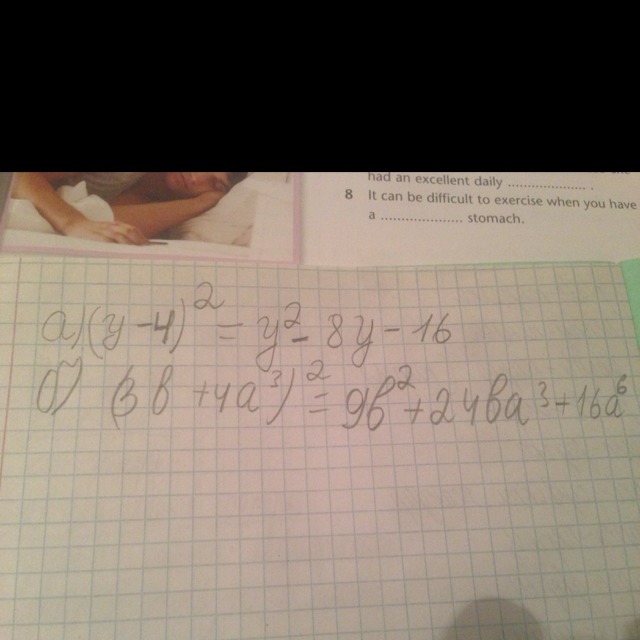 had an excellent daily ..................... .
8 It can be difficult to exercise when you have
a ..................... stomach.
а) (y - 4)² = y² - 8y - 16
б) (3b + 4a³)² = 9b² + 24ba³ + 16a⁶